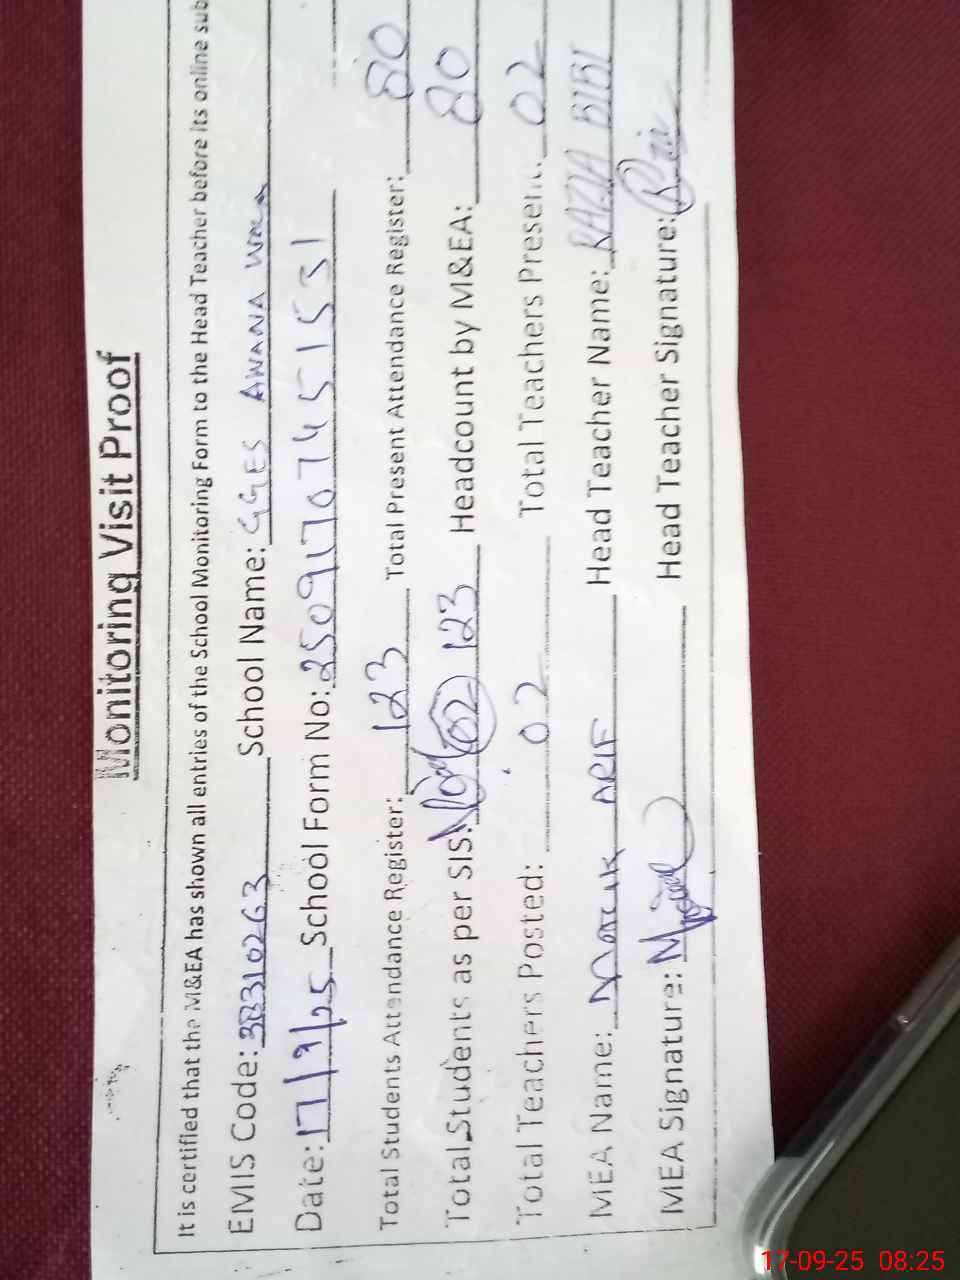 Monitoring Visit Proof
It is certified that the M&EA has shown all entries of the School Monitoring Form to the Head Teacher before its online sub
EMIS Code: 38310263 School Name: GGES AWANA
Date: 17/9/25 School Form No: 25091707451531
Total Students Attendance Register: 123 Total Present Attendance Register: 80
Total Students as per SIS: 123 Headcount by M&EA: 80
Total Teachers Posted: 02 Total Teachers Present: 02
MEA Name: ARIF Head Teacher Name: RAZIA BIBI
MEA Signature: Head Teacher Signature:
17-09-25 08:25